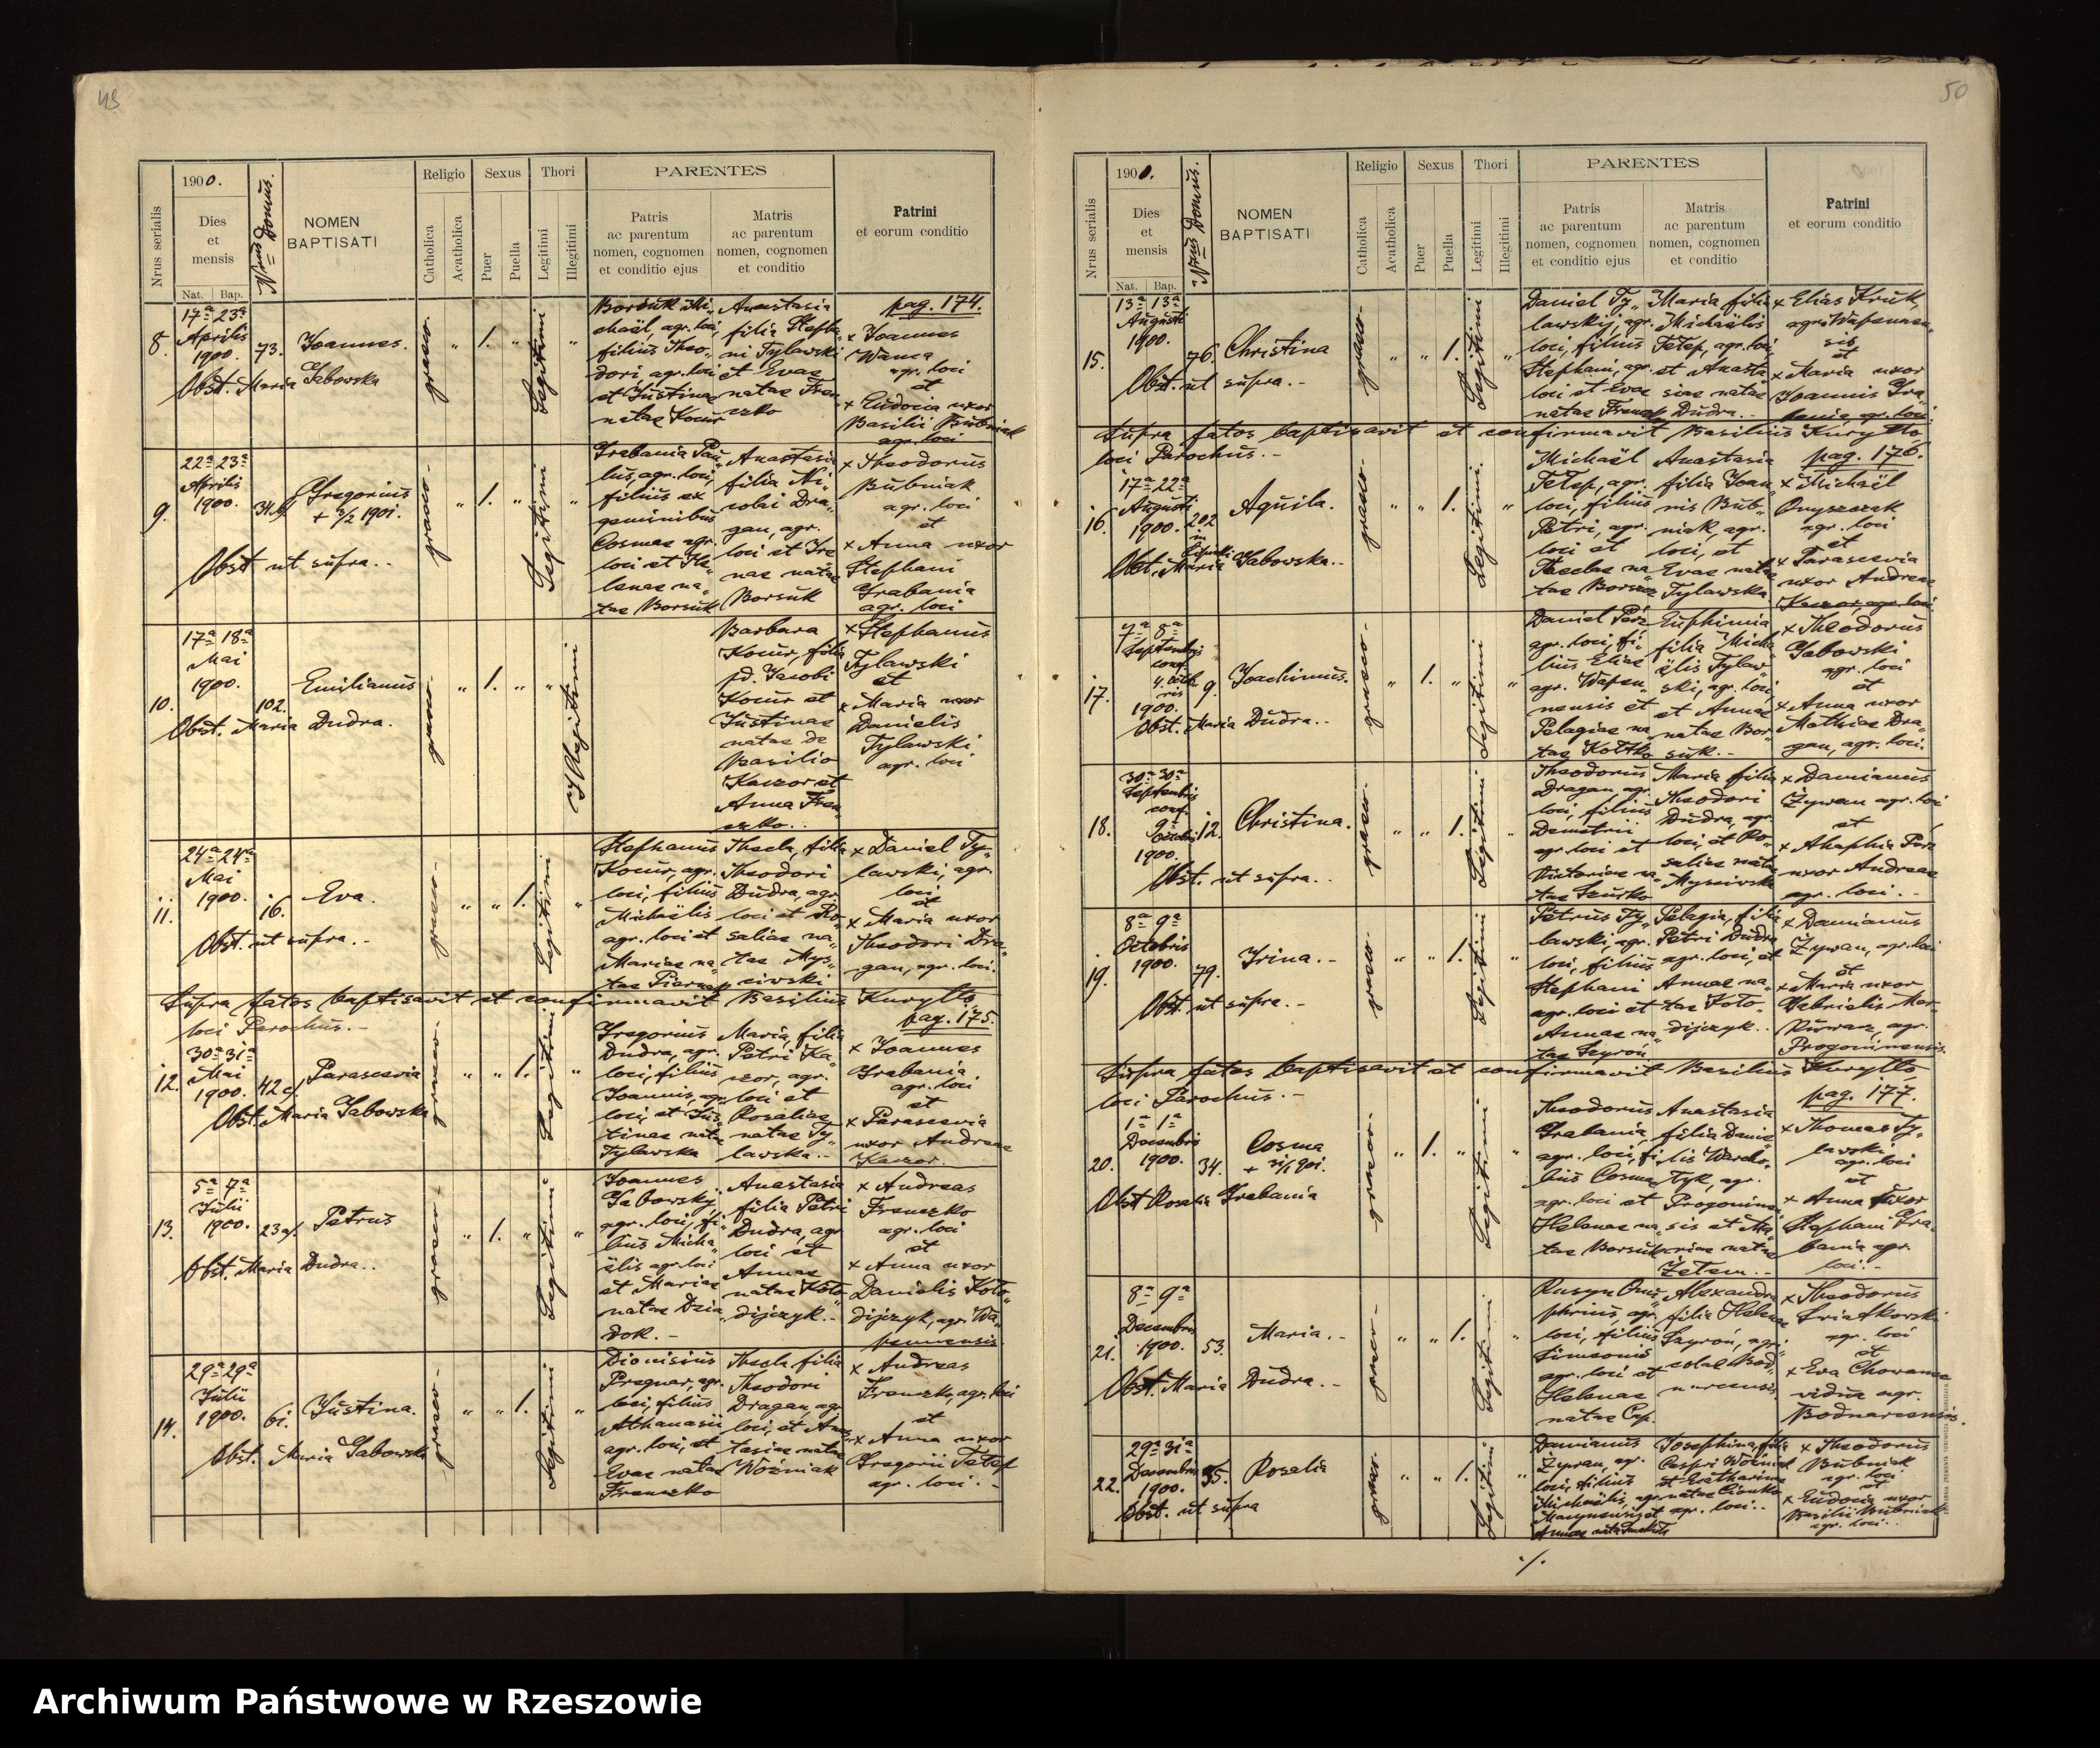 50
1900.
Nrus serialis
Dies
et
mensis
Nat. Bap.
Nrus Domus.
NOMEN
BAPTISATI
Religio
Catholica
Acatholica
Sexus
Puer
Puella
Thori
Legitimi
Illegitimi
PARENTES
Patris
ac parentum
nomen, cognomen
et conditio ejus
Matris
ac parentum
nomen, cognomen
et conditio
Patrini
et eorum conditio
pag. 174.
8.
17ª 23ª
Aprilis
1900.
73.
Joannes.
Obst. Maria Sabowska
graeco.
1.
Legitimi
Borsuk Mi-
chaël, agr. loci,
filius Theo-
dori agr. loci
et Justinae
natae Kocur
Anastasia
filia Stepha-
ni Tylawski
et Evae
natae Fren-
czko
x Joannes
Wanca
agr. loci
et
x Eudocia uxor
Basilii Bubniak
agr. loci
9.
22ª 23ª
Aprilis
1900.
Gregorius
Obst ut supra.
graeco
1.
Legitimi
Grabania Pau-
lus, agr. loci,
filius ex
geminibus
Cosmae agr.
loci et He-
lenae na-
tae Borsuk
Anastasia
filia Ni-
colai Dra-
gan, agr.
loci et Ire-
nae natae
Borsuk
x Theodorus
Bubniak
agr. loci
et
x Anna uxor
Stephani
Grabania
agr. loci
10.
17ª 18ª
Mai
1900.
102.
Emilianus
Obst. Maria Dudra.
graeco
1.
Illegitimi
Barbara
Kocur, filia
pd. Jacobi
Kocur et
Justinae
natae de
Basilio
Kaczor et
Anna Fren-
czko.
x Stephanus
Tylawski
et
x Maria uxor
Danielis
Tylawski
agr. loci
11.
24ª 24ª
Mai
1900.
16.
Eva.
Obst. ut supra.
graeco
1.
Legitimi
Stephanus
Kocur, agr.
loci, filius
Michaëlis
agr. loci et
Mariae na-
Thecla, filia
Theodori
Dudra, agr.
loci et Ro-
saliae na-
tae Mys-
ciwski
x Daniel Ty-
lawski, agr.
loci
et
x Maria uxor
Theodori Dra-
gan, agr. loci.
Supra fatos baptisavit et confirmavit Basilius Kuryłło,
loci Parochus.
pag. 175.
12.
30ª 31ª
Mai
1900.
Parascevia
Obst. Maria Sabowska
graeco
1.
Legitimi
Gregorius
Dudra, agr.
loci, filius
Joannis, agr.
loci, et Jus-
tinae natae
Tylawska
Maria, filia
Petri Ka-
czor, agr.
loci et
Rosaliae
natae Ty-
lawska.
x Joannes
Grabania
agr. loci
et
x Parascevia
uxor Andreae
Kaczor.
13.
5ª 7ª
Julii
1900.
Petrus
Obst. Maria Dudra.
graeco
1.
Legitimi
Joannes
Sabowsky,
agr. loci, fi-
lius Micha-
ëlis agr. loci
et Mariae
natae Dzia-
dok.
Anastasia
filia Petri
Dudra, agr.
loci et
Annae
natae Koło-
dijczyk.
x Andreas
Frenczko
agr. loci
et
x Anna uxor
Danielis Koło-
dijczyk, agr. Wa-
pennensis
14.
29ª 29ª
Julii
1900.
61.
Justina.
Obst. Maria Sabowska
graeco
1.
Legitimi
Dionisius
Pregnar, agr.
loci, filius
Athanasii
agr. loci, et
Evae natae
Frenczko
Thecla filia
Theodori
Dragan, agr.
loci, et Anas-
tasiae natae
Woźniak
x Andreas
Frenczko, agr. loci
et
x Anna uxor
Gregorii Fetep
agr. loci.
1900.
Nrus serialis
Dies
et
mensis
Nat. Bap.
Nrus Domus.
NOMEN
BAPTISATI
Religio
Catholica
Acatholica
Sexus
Puer
Puella
Thori
Legitimi
Illegitimi
PARENTES
Patris
ac parentum
nomen, cognomen
et conditio ejus
Matris
ac parentum
nomen, cognomen
et conditio
Patrini
et eorum conditio
15.
13ª 13ª
Augusti
1900.
76
Christina
Obst. ut supra.
graeco
1.
Legitimi
Daniel Ty-
lawskij, agr.
loci, filius
Stephani, agr.
loci et Evae
natae Frenczko
Maria filia
Michaëlis
Fetep, agr. loci,
et Anasta-
siae natae
Dudra.
x Elias Kruk,
agr. Wapennen-
sis
et
x Maria uxor
Joannis Gra-
bania, agr. loci.
Supra fatos baptisavit et confirmavit Basilius Kuryłło,
loci Parochus.
pag. 176.
16.
17ª 22ª
Augusti
1900.
202
Aquila.
Obst. Maria Sabowska.
graeco
1.
Legitimi
Michaël
Fetep, agr.
loci, filius
Petri, agr.
loci et
Theclae na-
Anastasia
filia Joan-
nis Bub-
niak, agr.
loci, et
Evae natae
Tylawska
x Michaël
Onyszczak
agr. loci
et
x Parascevia
uxor Andreae
Kaczor, agr. loci.
17.
7ª 8ª
Septembris
conf.
4. Octob-
ris
1900.
9.
Joachimus.
Obst. Maria Dudra.
graeco
1.
Legitimi
agr. loci, fi-
lius Eliae
agr. Wapen-
nensis et
Pelagiae na-
Euphimia
filia Micha-
ëlis Tylaw-
ski, agr. loci,
et Annae
natae Bor-
suk.
x Theodorus
Sabowski
agr. loci
et
x Anna uxor
Mathiae Dra-
gan, agr. loci.
18.
30ª 30ª
Septembris
conf.
9ª
Octobris
1900.
12.
Christina.
Obst. ut supra.
graeco
1.
Legitimi
Theodorus
Dragan agr.
loci, filius
Demetrii
agr. loci et
Victoriae na-
Maria filia
Theodori
Dudra, agr.
loci, et Ro-
saliae natae
Mysciwska
x Damianus
Żywan agr. loci
et
uxor Andreae
agr. loci.
19.
8ª 9ª
Octobris
1900.
79.
Irina.
Obst. ut supra.
graeco
1.
Legitimi
Petrus Ty-
lawski, agr.
loci, filius
Stephani
agr. loci et
Annae na-
Pelagia, filia
Petri Dudra
agr. loci, et
Annae na-
tae Koło-
dijczyk.
x Damianus
Żywan, agr. loci
et
x Maria uxor
Gabrielis
agr.
Supra fatos baptisavit et confirmavit Basilius Kuryłło
loci Parochus.
pag. 177.
20.
1ª 1ª
Decembris
1900.
34.
Cosma
Obst Rosalia Grabania
graeco
1.
Legitimi
Theodorus
Grabania,
agr. loci, fi-
lius Cosmae
agr. loci et
Helenae na-
tae Borsuk
Anastasia
filia Danie-
lis
agr.
sis et Ma-
riae natae
x Thomas Ty-
lawski
agr. loci
et
x Anna uxor
Stephani Gra-
bania agr.
loci.
21.
8ª 9ª
Decembris
1900.
53.
Maria.
Obst. Maria Dudra.
graeco
1.
Legitimi
Rusyn Onu-
phrius, agr.
loci, filius
Simeonis
agr. loci et
Helenae
natae Cap.
Alexandra
filia Helenae
x Theodorus
agr. loci
et
x Eva
vidua agr.
Bodnarcensis.
22.
29ª 31ª
Decembris
1900.
Rosalia
Obst. ut supra
graeco
1.
Legitimi
Damianus
Żywan, agr.
loci, filius
Michaëlis, agr.
Josephina, filia
Caspri Woźniak
et Catharinae
agr. loci.
x Theodorus
Bubniak
agr. loci
et
x Eudocia uxor
Basilii Bubniak
agr. loci.
Archiwum Państwowe w Rzeszowie